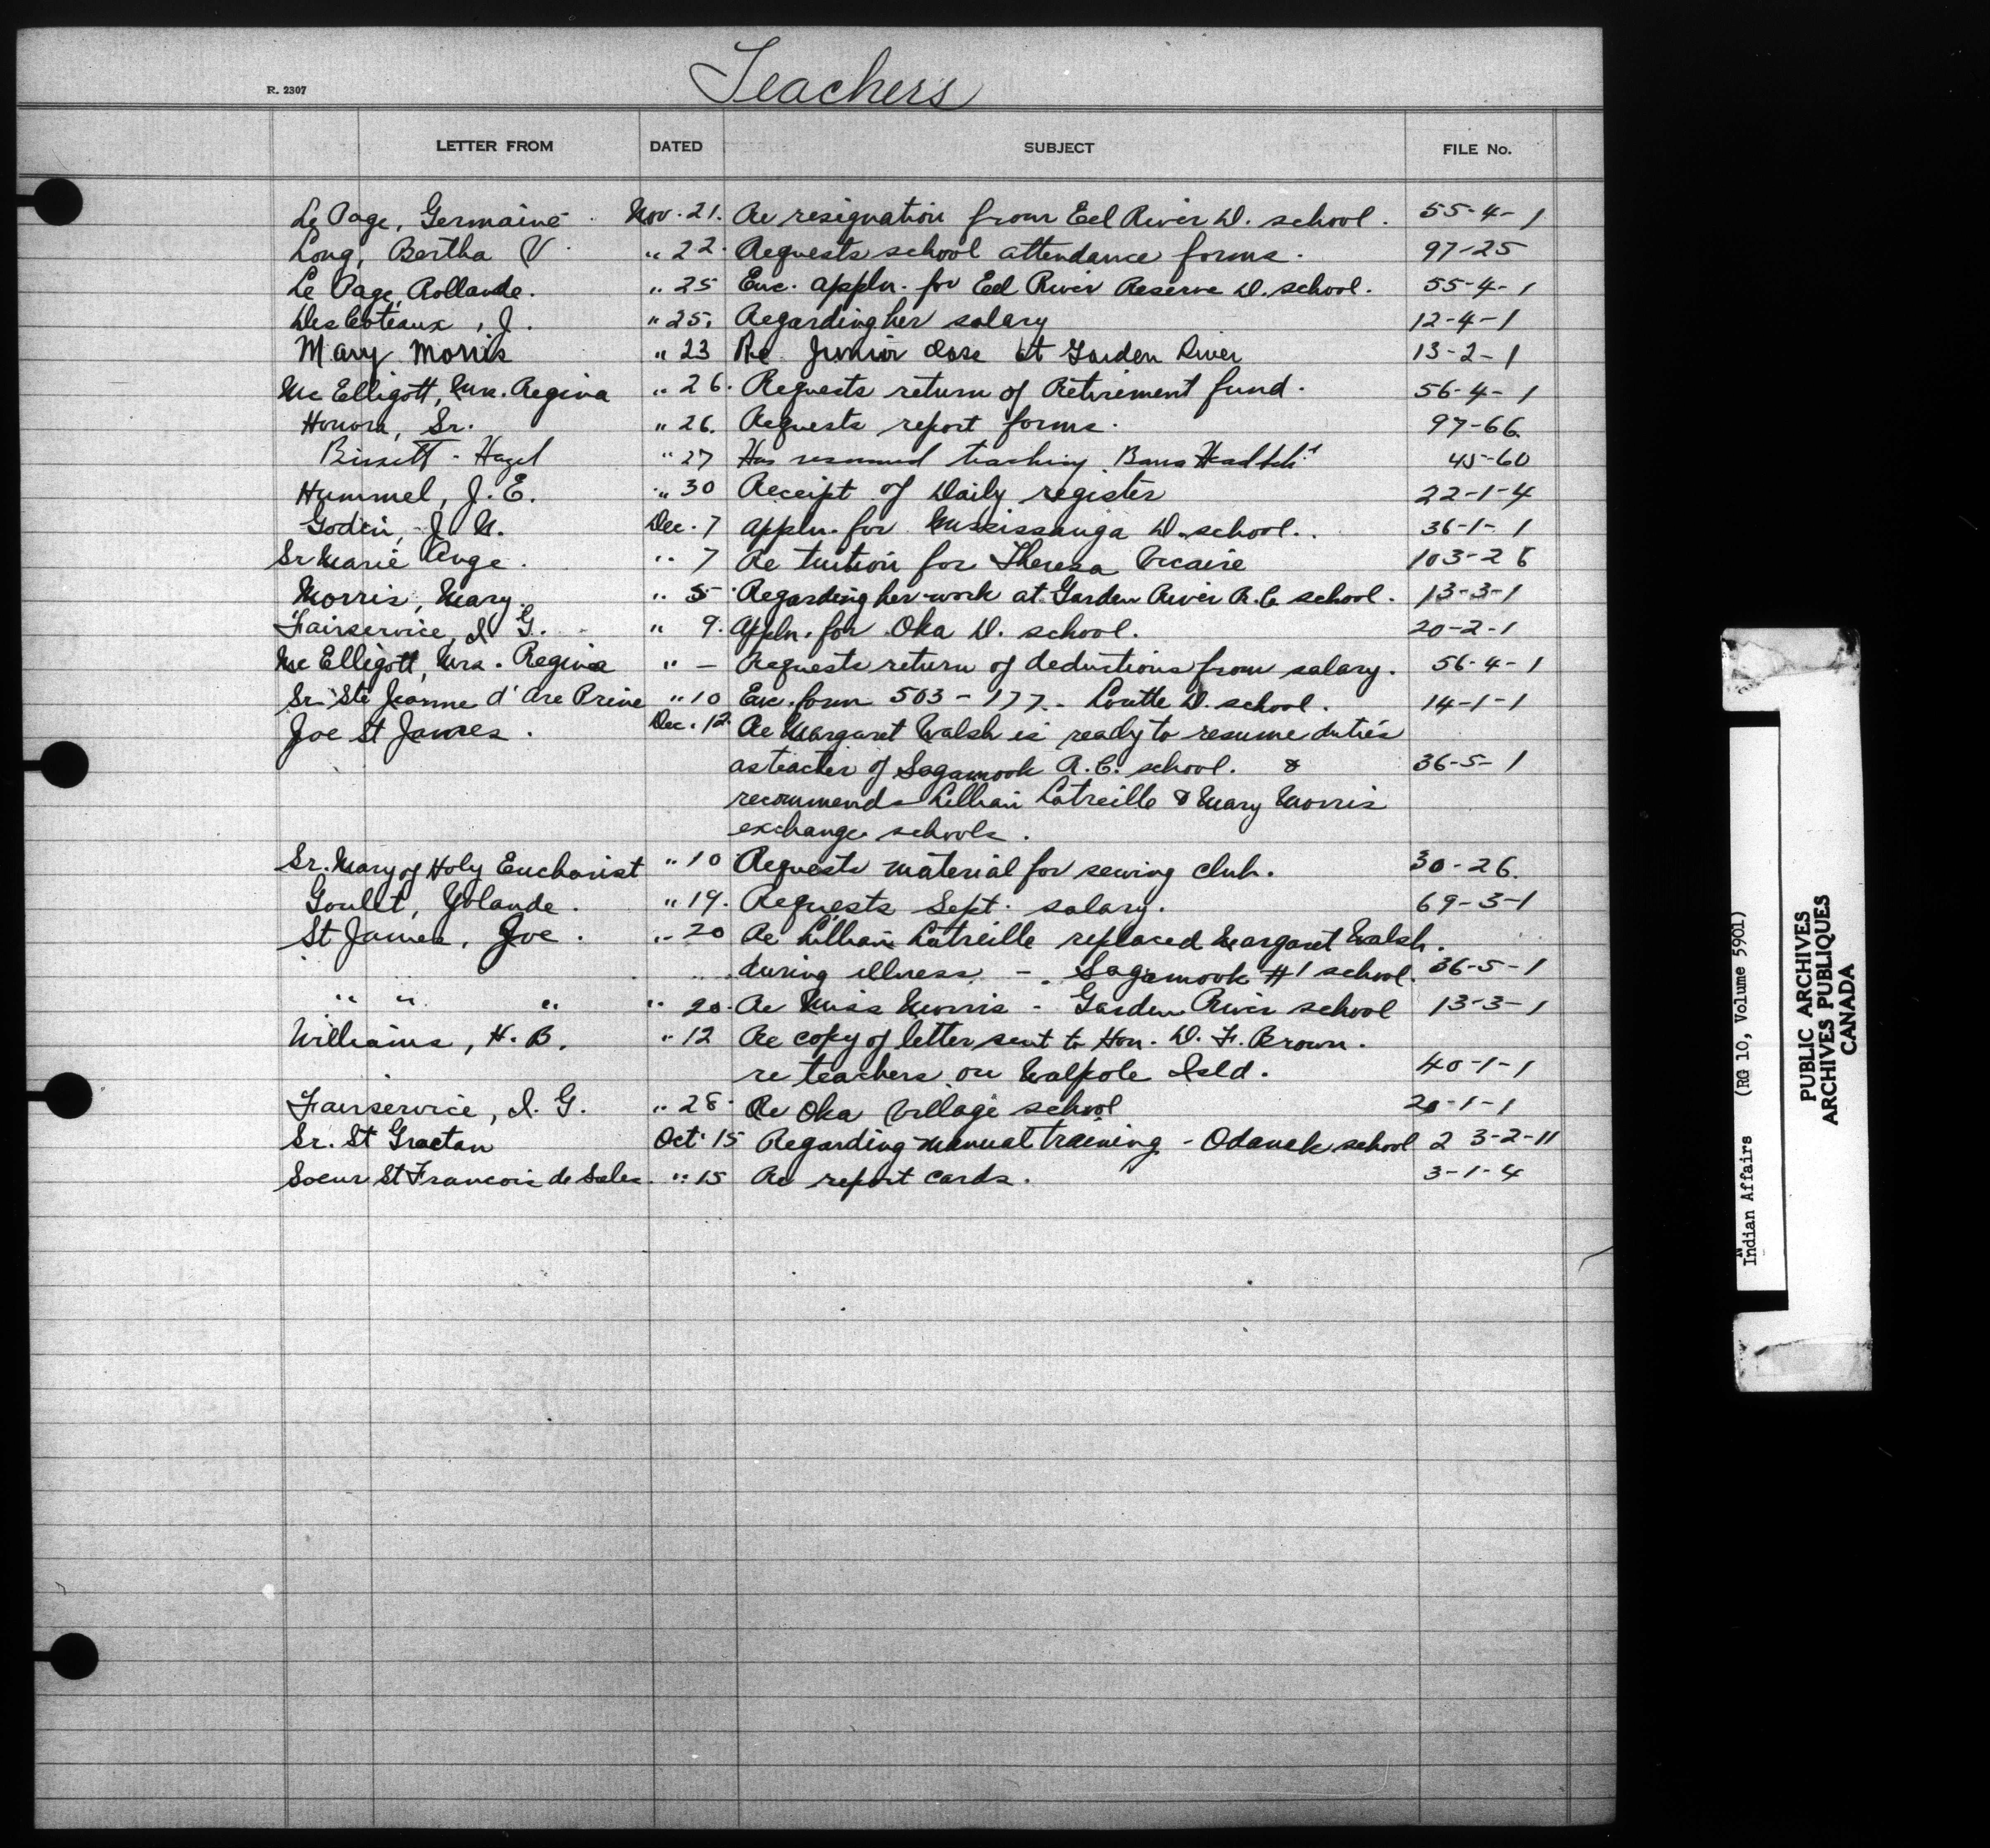 Teachers
R. 2307
LETTER FROM DATED SUBJECT FILE No.
Le Page, Germaine Nov. 21. Re resignation from Eel River D. school. 55-4-1
Long, Bertha V. " 22. Requests school attendance forms. 97-25
Le Page, Rollande. " 25 Enc. appln. for Eel River Reserve D. school. 55-4-1
DesCoteaux, J. " 25. Regarding her salary 12-4-1
Mary Morris " 23 Re Junior class at Garden River 13-2-1
Mc Elligott, Mrs. Regina " 26. Requests return of Retirement fund. 56-4-1
Honora, Sr. " 26. Requests report forms. 97-66
Bissett - Hazel " 27 Has resumed teaching 45-60
Hummel, J. E. " 30 Receipt of Daily register 22-1-4
Godin, J. N. Dec. 7 appln. for Mississauga D. school. 36-1-1
Sr Marie Ange. " 7 Re tuition for Theresa 103-28
Morris, Mary. " 5 Regarding her work at Garden River R.C. school. 13-3-1
Fairservice, I. G. " 9. appln. for Oka D. school. 20-2-1
Mc Elligott, Mrs. Regina " — Requests return of deductions from salary. 56-4-1
Sr. Ste Jeanne d'Arc " 10 Enc. form 503-177 - D. school. 14-1-1
Joe St James. Dec. 12. Re Margaret Walsh is ready to resume duties
as teacher of Sagamook R.C. school. & 36-5-1
recommends Lillian Latreille & Mary Morris
exchange schools.
Sr. Mary of Holy Eucharist " 10 Requests material for sewing club. 30-26.
Goulet, Yolande. " 19. Requests Sept. salary. 69-3-1
St James, Joe. " 20 Re Lillian Latreille replaced Margaret Walsh.
during illness - Sagamook #1 school. 36-5-1
" " " " 20. Re Miss Morris - Garden River school 13-3-1
Williams, H. B. " 12 Re copy of letter sent to Hon. D. F. Brown.
re teachers on Walpole Isld. 40-1-1
Fairservice, I. G. " 28. Re Oka Village school 20-1-1
Sr. St Graetan Oct. 15 Regarding manual training - Odanak school 2 3-2-11
Soeur St Francois de Sales. " 15 Re report cards. 3-1-4
Indian Affairs (RG 10, Volume 5901)
PUBLIC ARCHIVES
ARCHIVES PUBLIQUES
CANADA